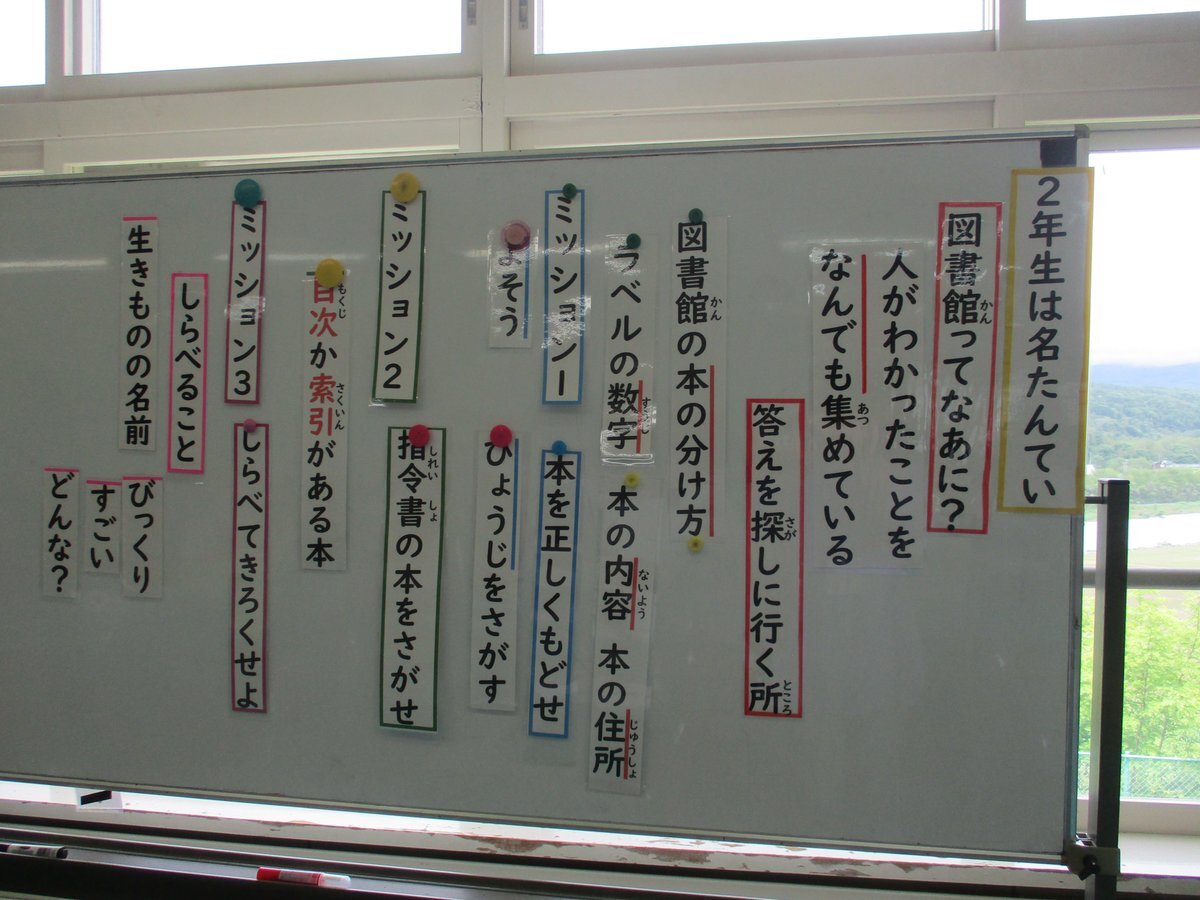 2年生は名たんてい
図書館ってなあに?
かん
人がわかったことを
なんでも集めている
あつ
答えを探しに行く所
さが
ところ
図書館の本の分け方
かん
ラベルの数字
すうじ
本の内容
ないよう
本の住所
じゅうしょ
ミッション1
本を正しくもどせ
よそう
ひょうじをさがす
ミッション2
指令書の本をさがせ
しれいしょ
目次か索引がある本
もくじ
さくいん
ミッション3
しらべてきろくせよ
しらべること
生きものの名前
びっくり
すごい
どんな?